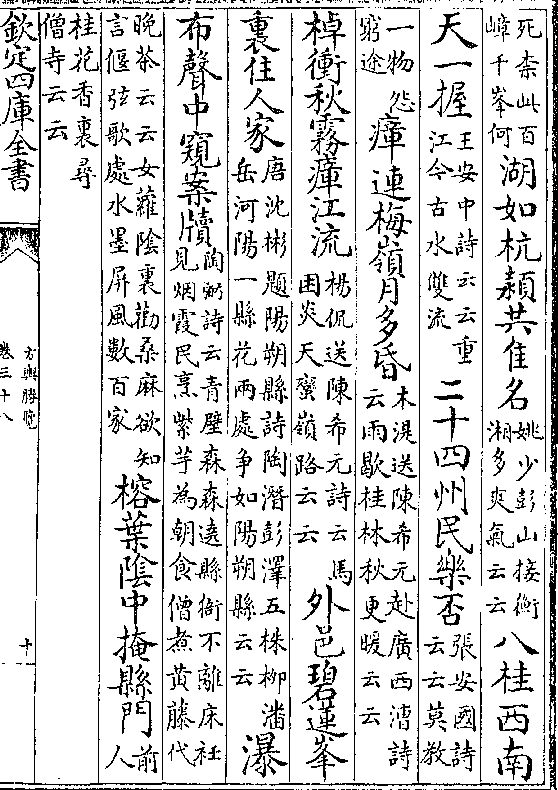 死柰此百嶂千峯何湖如杭潁共隹名姚少彭山接衡湘多爽氣云云八桂西南
天一握王安中詩云云重江今古水雙流二十四州民樂否張安國詩云云莫教
一物怨窮途瘴連梅嶺月多昏木湜送陳希元赴廣西漕詩云雨歇桂林秋更暖云云
棹衝秋霧瘴江流楊侃送陳希元詩云馬困炎天蠻嶺路云云外邑碧蓮峯
裏住人家唐沈彬題陽朔縣詩陶潛彭澤五株柳潘岳河陽一縣花兩處争如陽朔縣云云瀑
布聲中窺案牘陶弼詩云青壁森森遠縣衙不離床衽見烟霞民烹紫芋為朝食僧煮黄藤代
晩茶云云女蘿陰裏勸桑麻欲知言偃弦歌處水墨屏風數百家榕葉陰中掩縣門前人
桂花香裏尋僧寺云云
欽定四庫全書
方輿勝覽
卷三十八
十